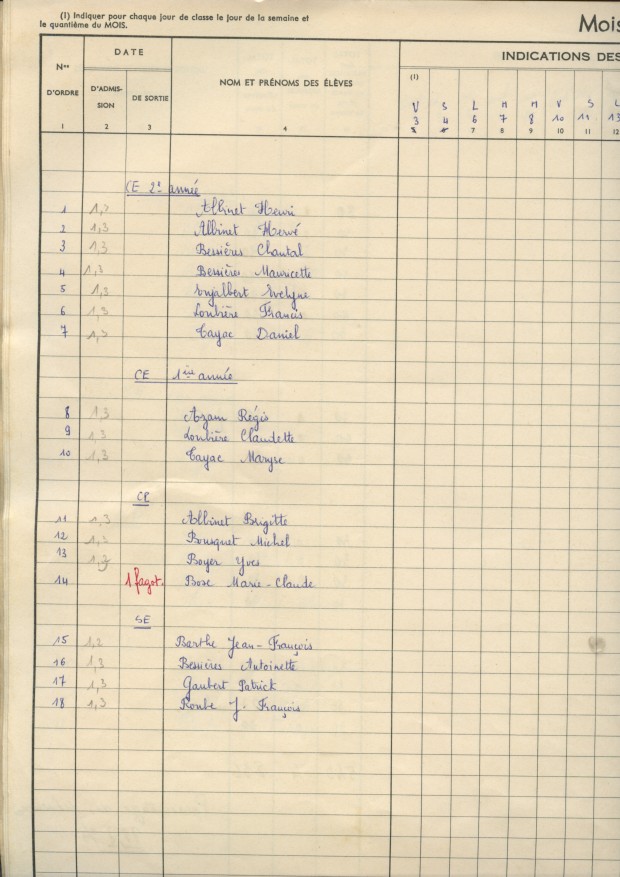 (1) Indiquer pour chaque jour de classe le jour de la semaine et
le quantième du MOIS.
Mois
DATE
INDICATIONS DES
Nos
D'ORDRE
D'ADMIS-
SION
DE SORTIE
NOM ET PRÉNOMS DES ÉLÈVES
(1)
V S L M M V S L
3 4 6 7 8 10 11 13
1 2 3 4 7 8 9 10 11 12
CE 2e année
1 1,3 Albinet Henri
2 1,3 Albinet Hervé
3 1,3 Bessières Chantal
4 1,3 Bessières Mauricette
5 1,3 Enjalbert Evelyne
6 1,3 Loubière Francis
7 1,3 Cayac Daniel
CE 1ière année
8 1,3 Azam Régis
9 1,3 Loubière Claudette
10 1,3 Cayac Maryse
CP
11 1,3 Albinet Brigitte
12 1,3 Bousquet Michel
13 1,3 Boyer Yves
14 1 fagot. Bosc Marie-Claude
SE
15 1,2 Barthe Jean-François
16 1,3 Bessières Antoinette
17 1,3 Gaubert Patrick
18 1,3 J-François